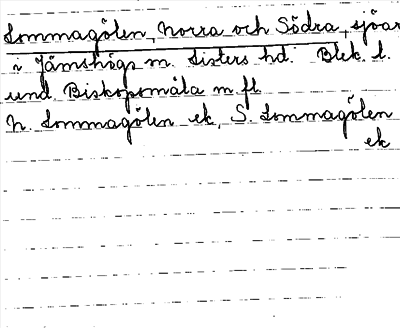 Sommagölen, Norra och Södra, sjöar
i Jämshögs sn. Listers hd. Blek. l.
und. Biskopsmåla m. fl.
N. Sommagölen ek, S. Sommagölen
ek